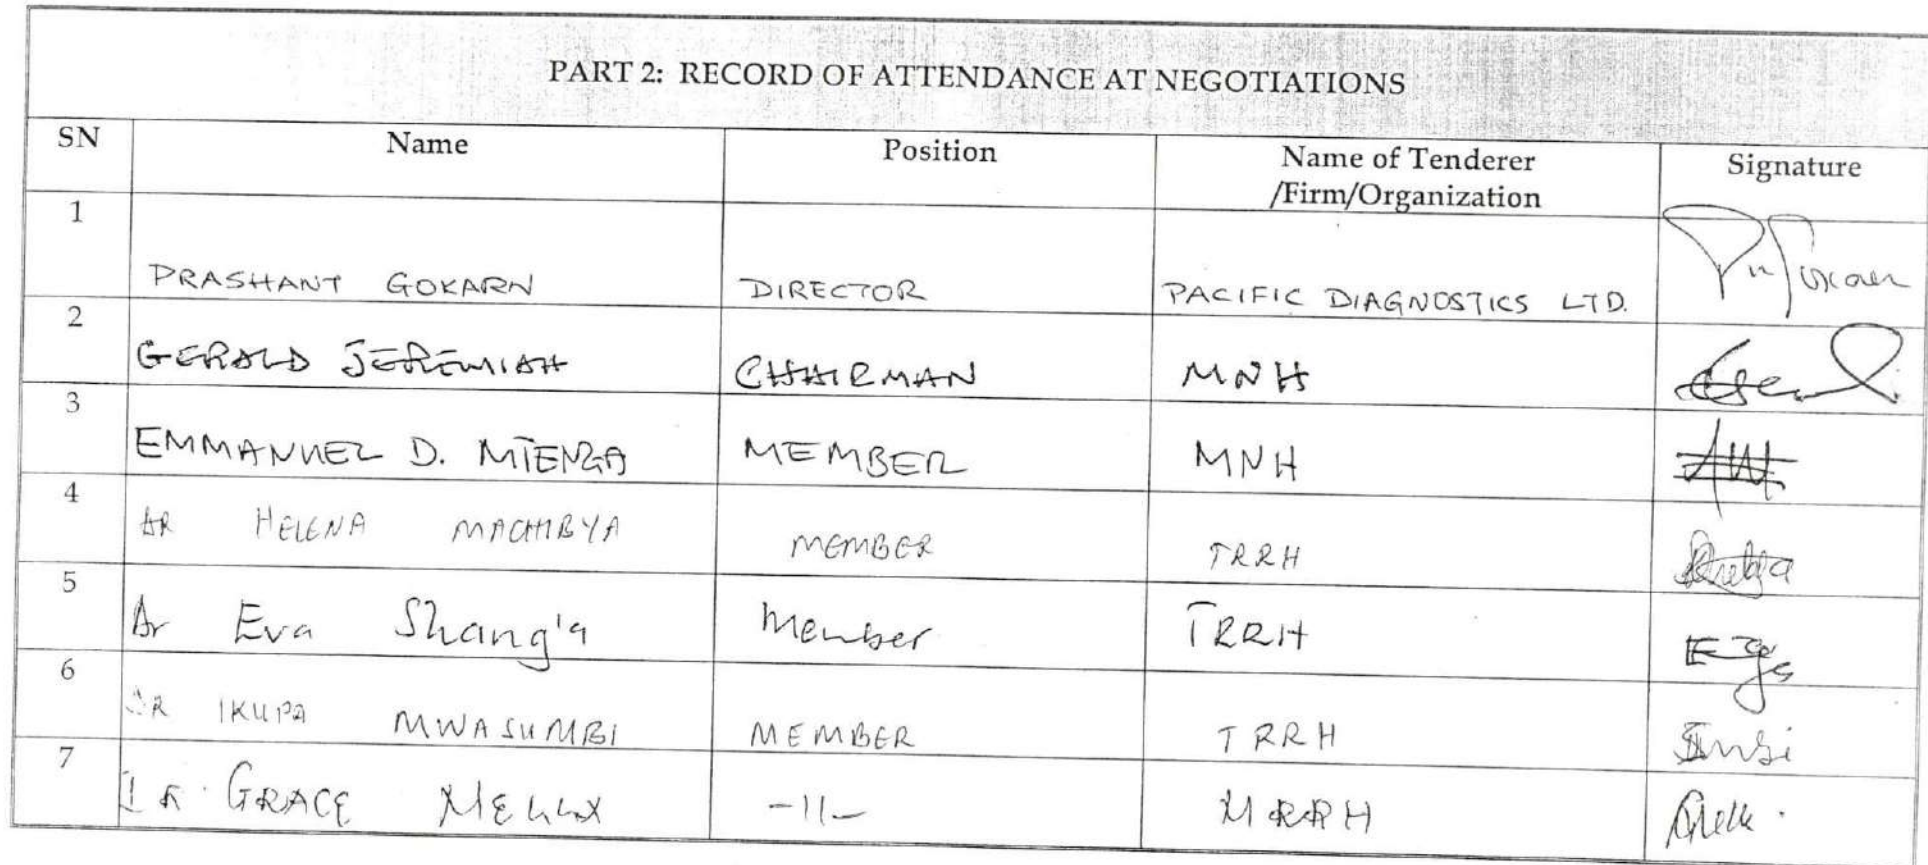 PART 2: RECORD OF ATTENDANCE AT NEGOTIATIONS
SN Name Position Name of Tenderer /Firm/Organization Signature
1 PRASHANT GOKARN DIRECTOR PACIFIC DIAGNOSTICS LTD.
2 GERALD JEREMIAH CHAIRMAN MNH
3 EMMANUEL D. MTENGA MEMBER MNH
4 DR HELENA MACHIBYA MEMBER TRRH
5 Dr Eva Shang'a Member TRRH
6 DR IKUPA MWASUMBI MEMBER TRRH
7 GRACE -11- MRRH